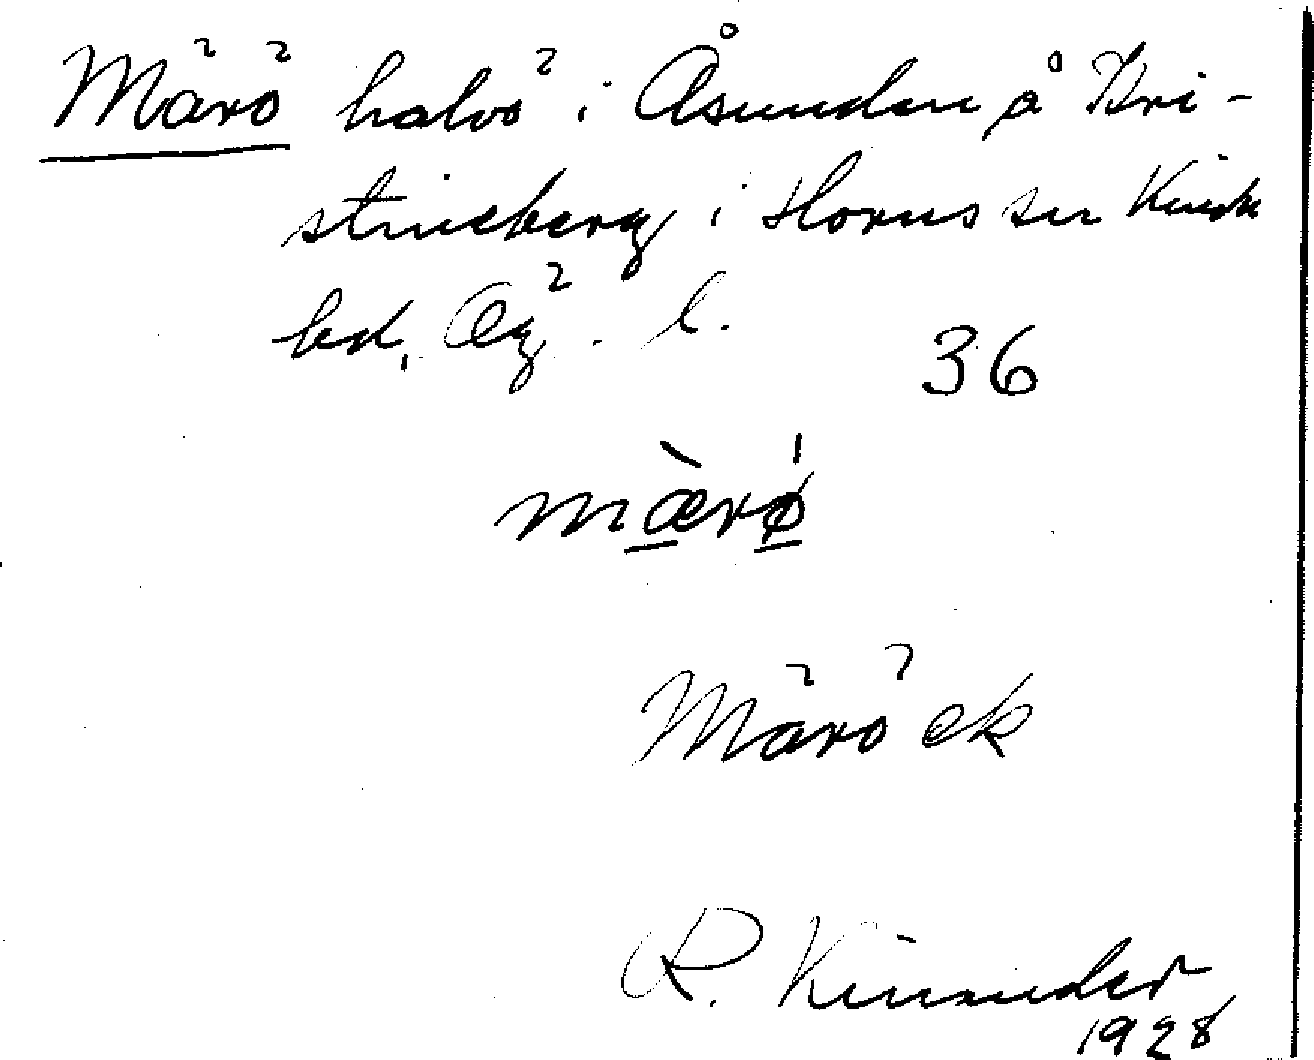 Märö halvö i Åsunden å Kri-
stineberg i Horns sn Kinda
hd, Ög. l.
36
mæ̀rø̍
Märö ek
R. Kinander
1928